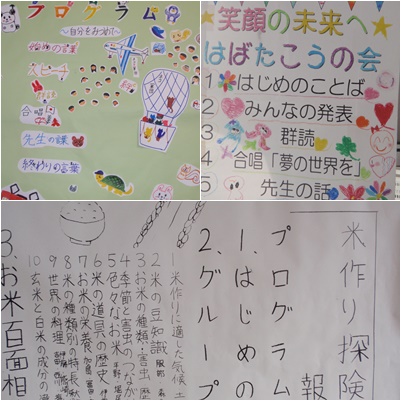 プログラム
～自分をみつめて～
始めの言葉
スピーチ
合唱
合奏
先生の話
終わりの言葉
☆笑顔の未来へ☆
はばたこうの会
1 はじめのことば
2 みんなの発表
3 群読
4 合唱「夢の世界を」
5 先生の話
米作り探険
報
プログラム
1.はじめの
2.グループ
1 米作りに適した気候 土
2 米の豆知識
3 お米の種類・害虫・歴
4 季節と害虫のつなが
5 色々なお米
6 米の道具の歴史
7 お米の栄養
8 米の種類別の特長
9 世界の料理
10 玄米と白米の成分の違
3.お米百面相